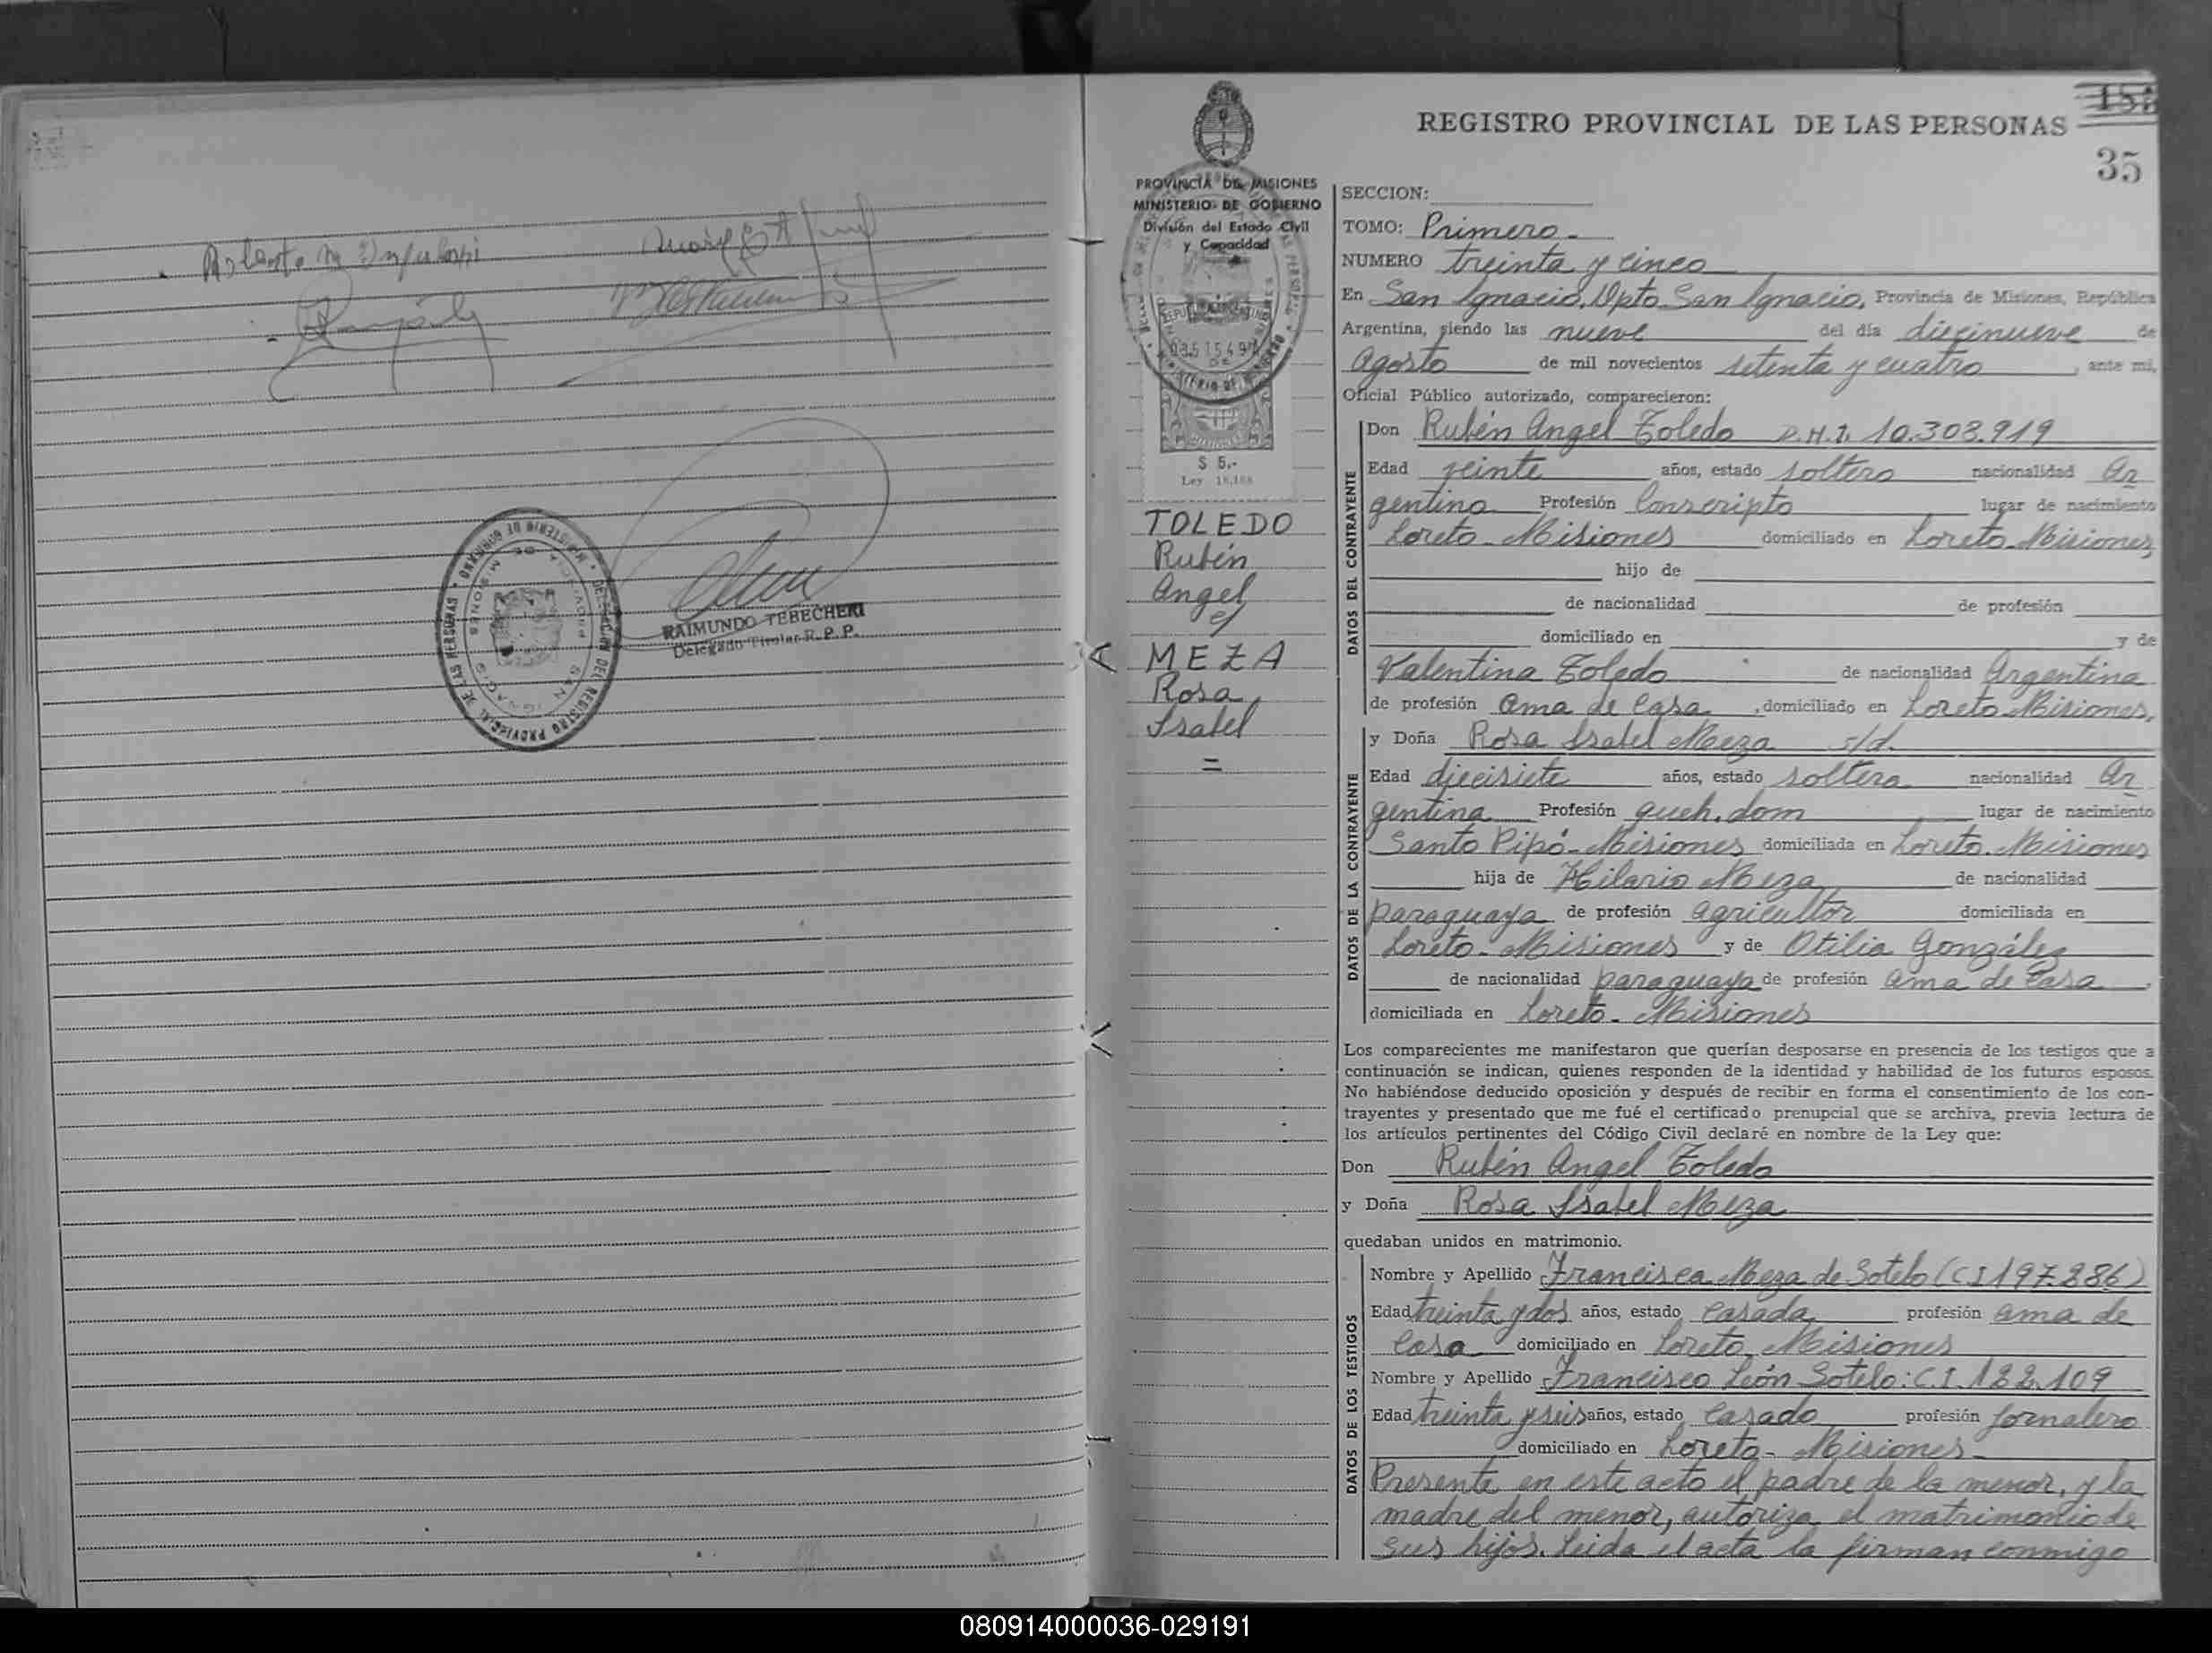 RAIMUNDO TEBECHERI
Delegado Titular R. P. P.
REGISTRO PROVINCIAL DE LAS PERSONAS
35
PROVINCIA DE MISIONES
MINISTERIO DE GOBIERNO
División del Estado Civil
y Capacidad
$ 5.-
Ley 18.188
TOLEDO
Rubén
Angel
c/
MEZA
Rosa
Isabel
=
SECCION:
TOMO: Primero
NUMERO treinta y cinco
En San Ignacio, Dpto San Ignacio, Provincia de Misiones, República
Argentina, siendo las nueve del día diecinueve de
Agosto de mil novecientos setenta y cuatro, ante mi,
Oficial Público autorizado, comparecieron:
DATOS DEL CONTRAYENTE
Don Rubén Angel Toledo D.N.I. 10.308.919
Edad veinte años, estado soltero nacionalidad Ar
gentina Profesión Conscripto lugar de nacimiento
Loreto - Misiones domiciliado en Loreto - Misiones,
hijo de
de nacionalidad de profesión
domiciliado en y de
Valentina Toledo de nacionalidad Argentina
de profesión ama de Casa, domiciliado en Loreto - Misiones,
DATOS DE LA CONTRAYENTE
y Doña Rosa Isabel Meza s/d.
Edad diecisiete años, estado soltera nacionalidad Ar
gentina Profesión queh. dom lugar de nacimiento
Santo Pipó - Misiones domiciliada en Loreto - Misiones
hija de Hilario Meza de nacionalidad
paraguaya de profesión agricultor domiciliada en
Loreto - Misiones y de Otilia González
de nacionalidad paraguaya de profesión ama de casa,
domiciliada en Loreto - Misiones
Los comparecientes me manifestaron que querían desposarse en presencia de los testigos que a
continuación se indican, quienes responden de la identidad y habilidad de los futuros esposos.
No habiéndose deducido oposición y después de recibir en forma el consentimiento de los con-
trayentes y presentado que me fué el certificado prenupcial que se archiva, previa lectura de
los artículos pertinentes del Código Civil declaré en nombre de la Ley que:
Don Rubén Angel Toledo
y Doña Rosa Isabel Meza
quedaban unidos en matrimonio.
DATOS DE LOS TESTIGOS
Nombre y Apellido Francisca Meza de Sotelo (CI 197.286)
Edad treinta y dos años, estado Casada profesión ama de
Casa domiciliado en Loreto - Misiones
Nombre y Apellido Francisco León Sotelo: C.I. 122.109
Edad treinta y seis años, estado Casado profesión jornalero
domiciliado en Loreto - Misiones
Presente en este acto el padre de la menor, y la
madre del menor, autoriza el matrimonio de
sus hijos. Leida el acta la firman conmigo
080914000036-029191